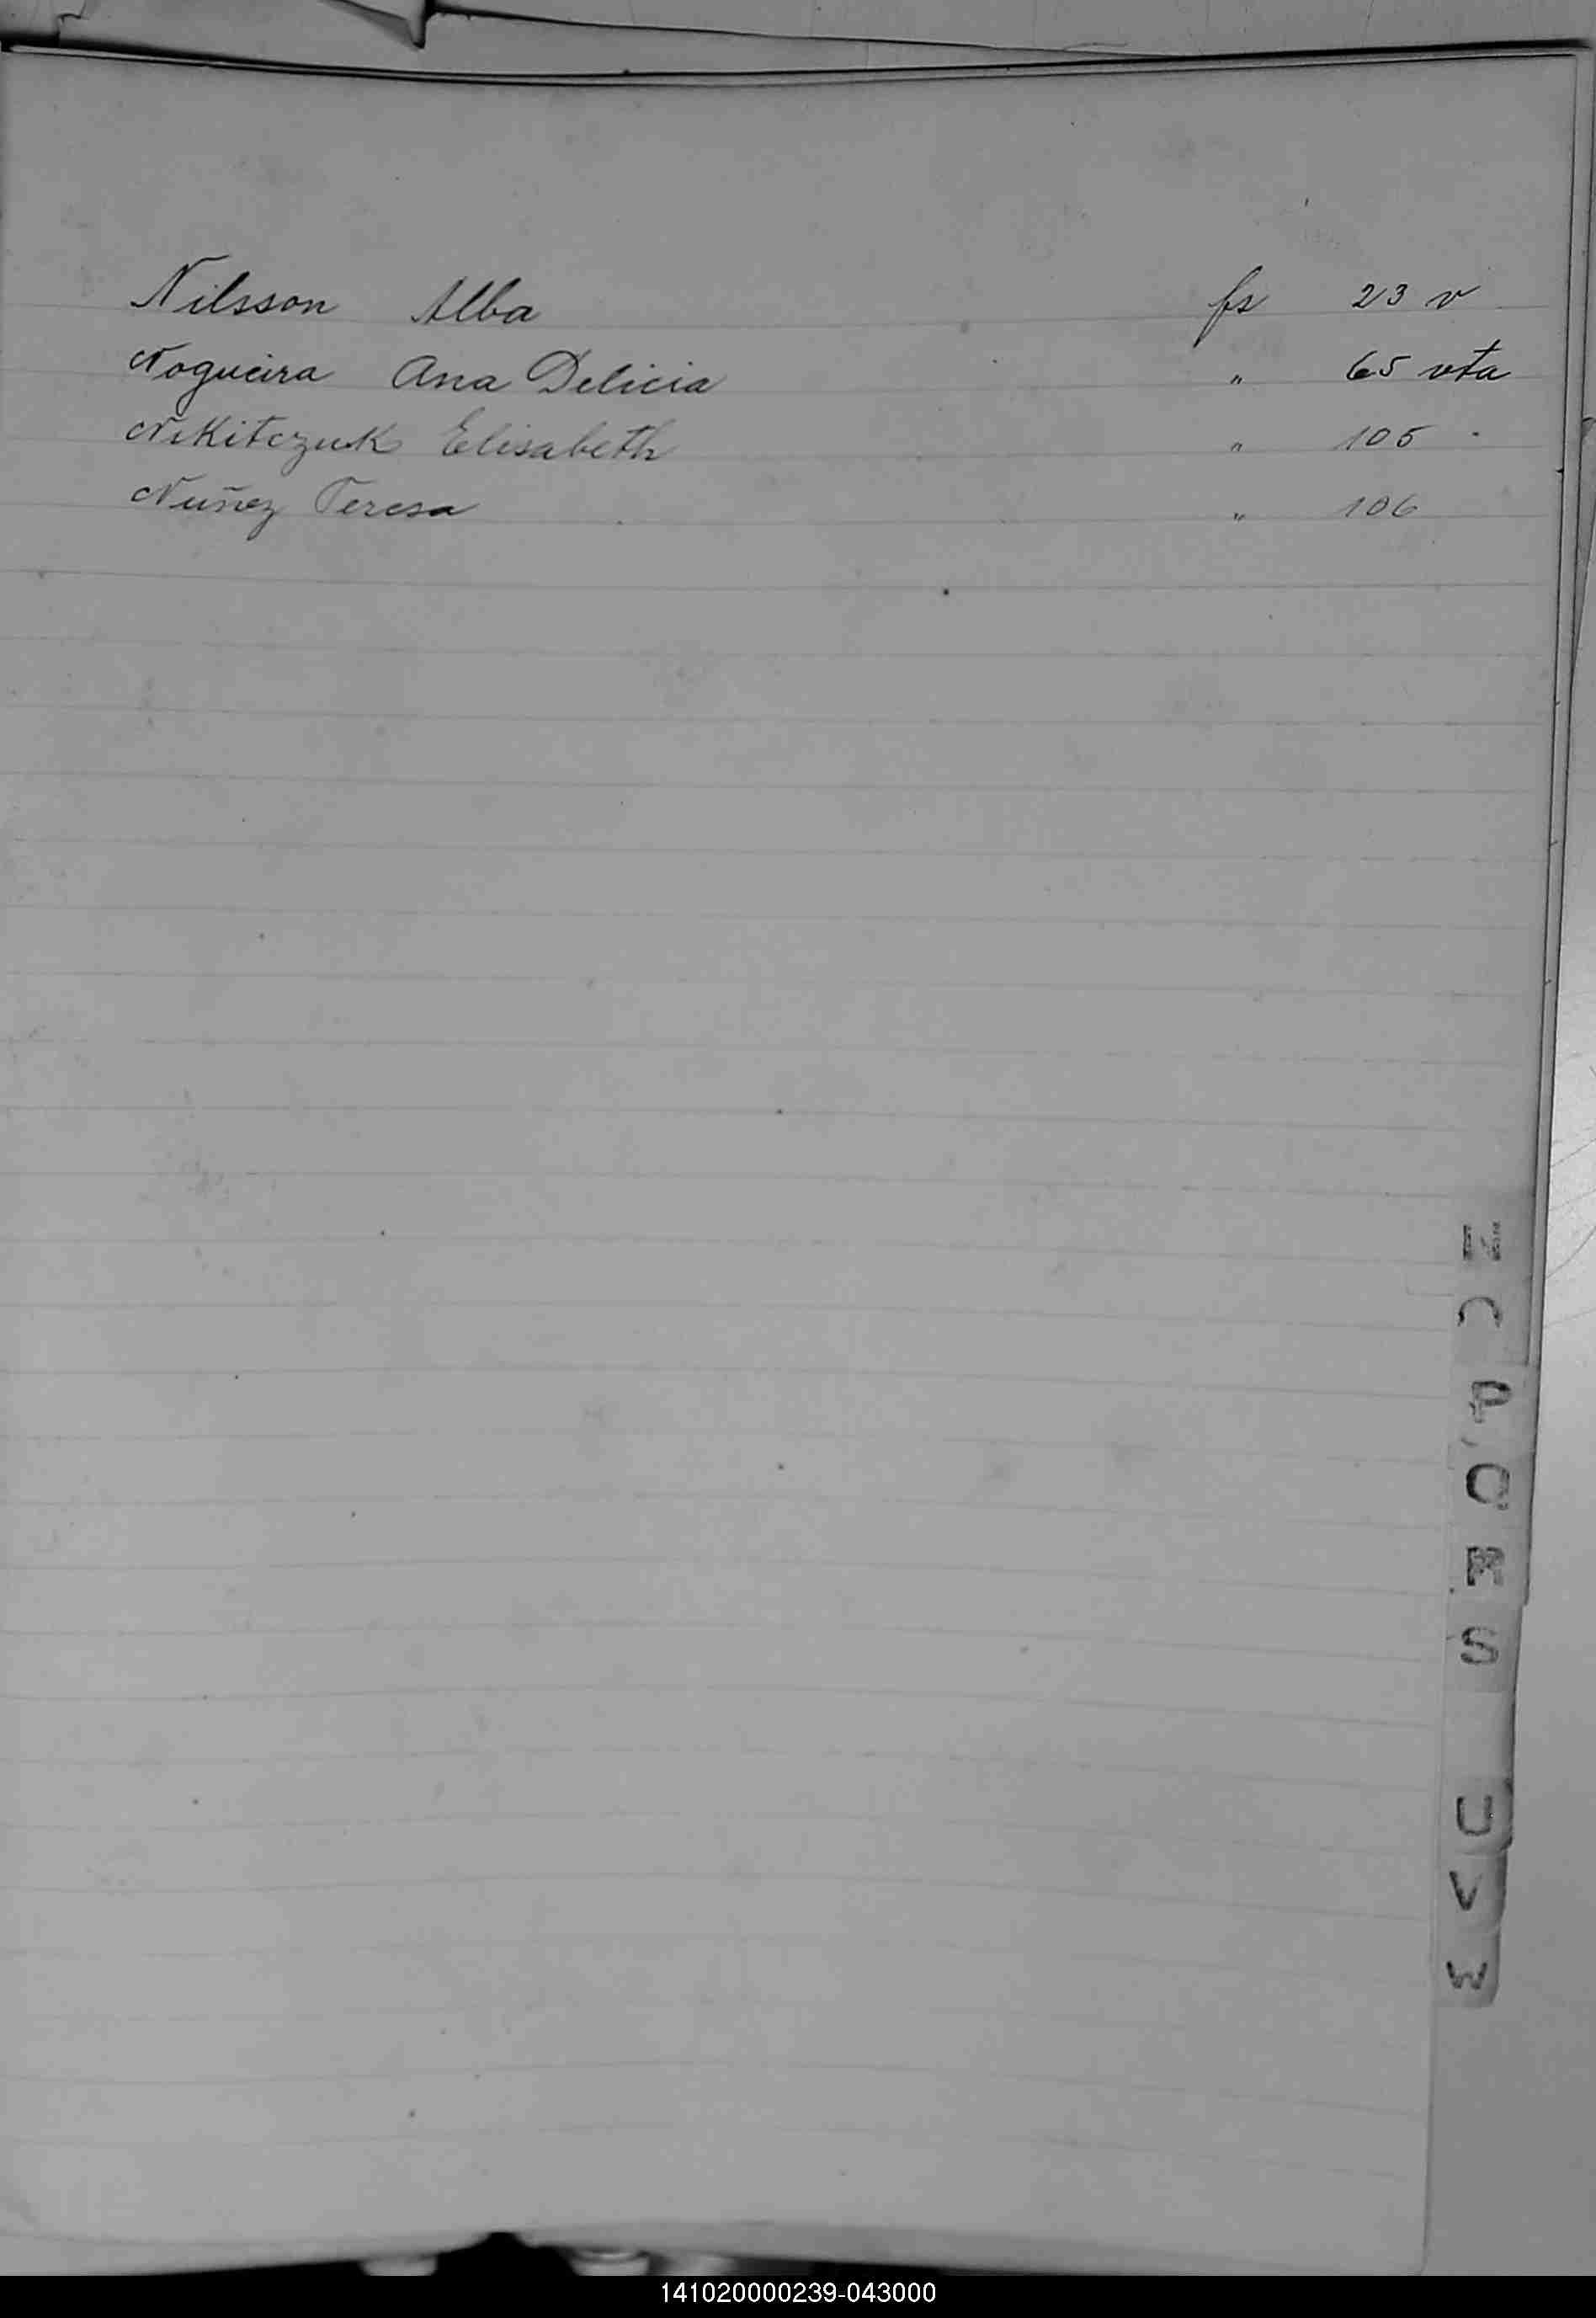 Nilsson Alba fs 23 v
Nogueira Ana Delicia " 65 vta
Nikitczuk Elisabeth " 105
Nuñez Teresa " 106
N
O
P
Q
R
S
U
V
W
141020000239-043000